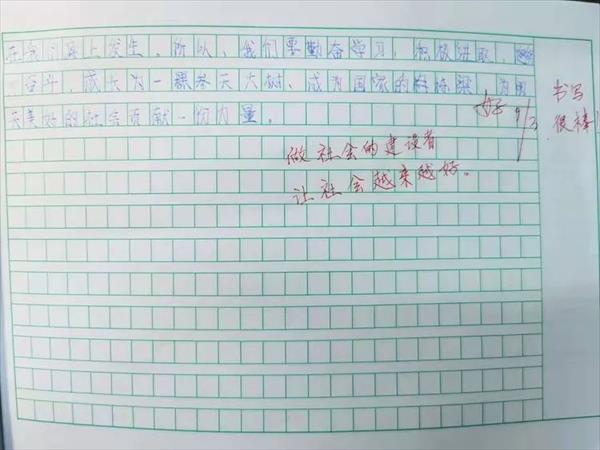 在我们身上发生。所以，我们要勤奋学习，积极进取，
奋斗，成长为一棵参天大树、成为国家的栋梁，为明
天美好的社会贡献一份力量。
好 9/3
书写
很棒！
做社会的建设者
让社会越来越好。